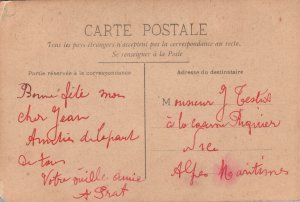 CARTE POSTALE
Tous les pays étrangers n'acceptent pas la correspondance au recto.
Se renseigner à la Poste
Partie réservée à la correspondance
Adresse du destinataire
Bonne fête mon
cher Jean
Amitiés de la part
de tous
Votre vieille amie
A Prat
Monsieur J Testid
à la
Nice
Alpes Maritimes